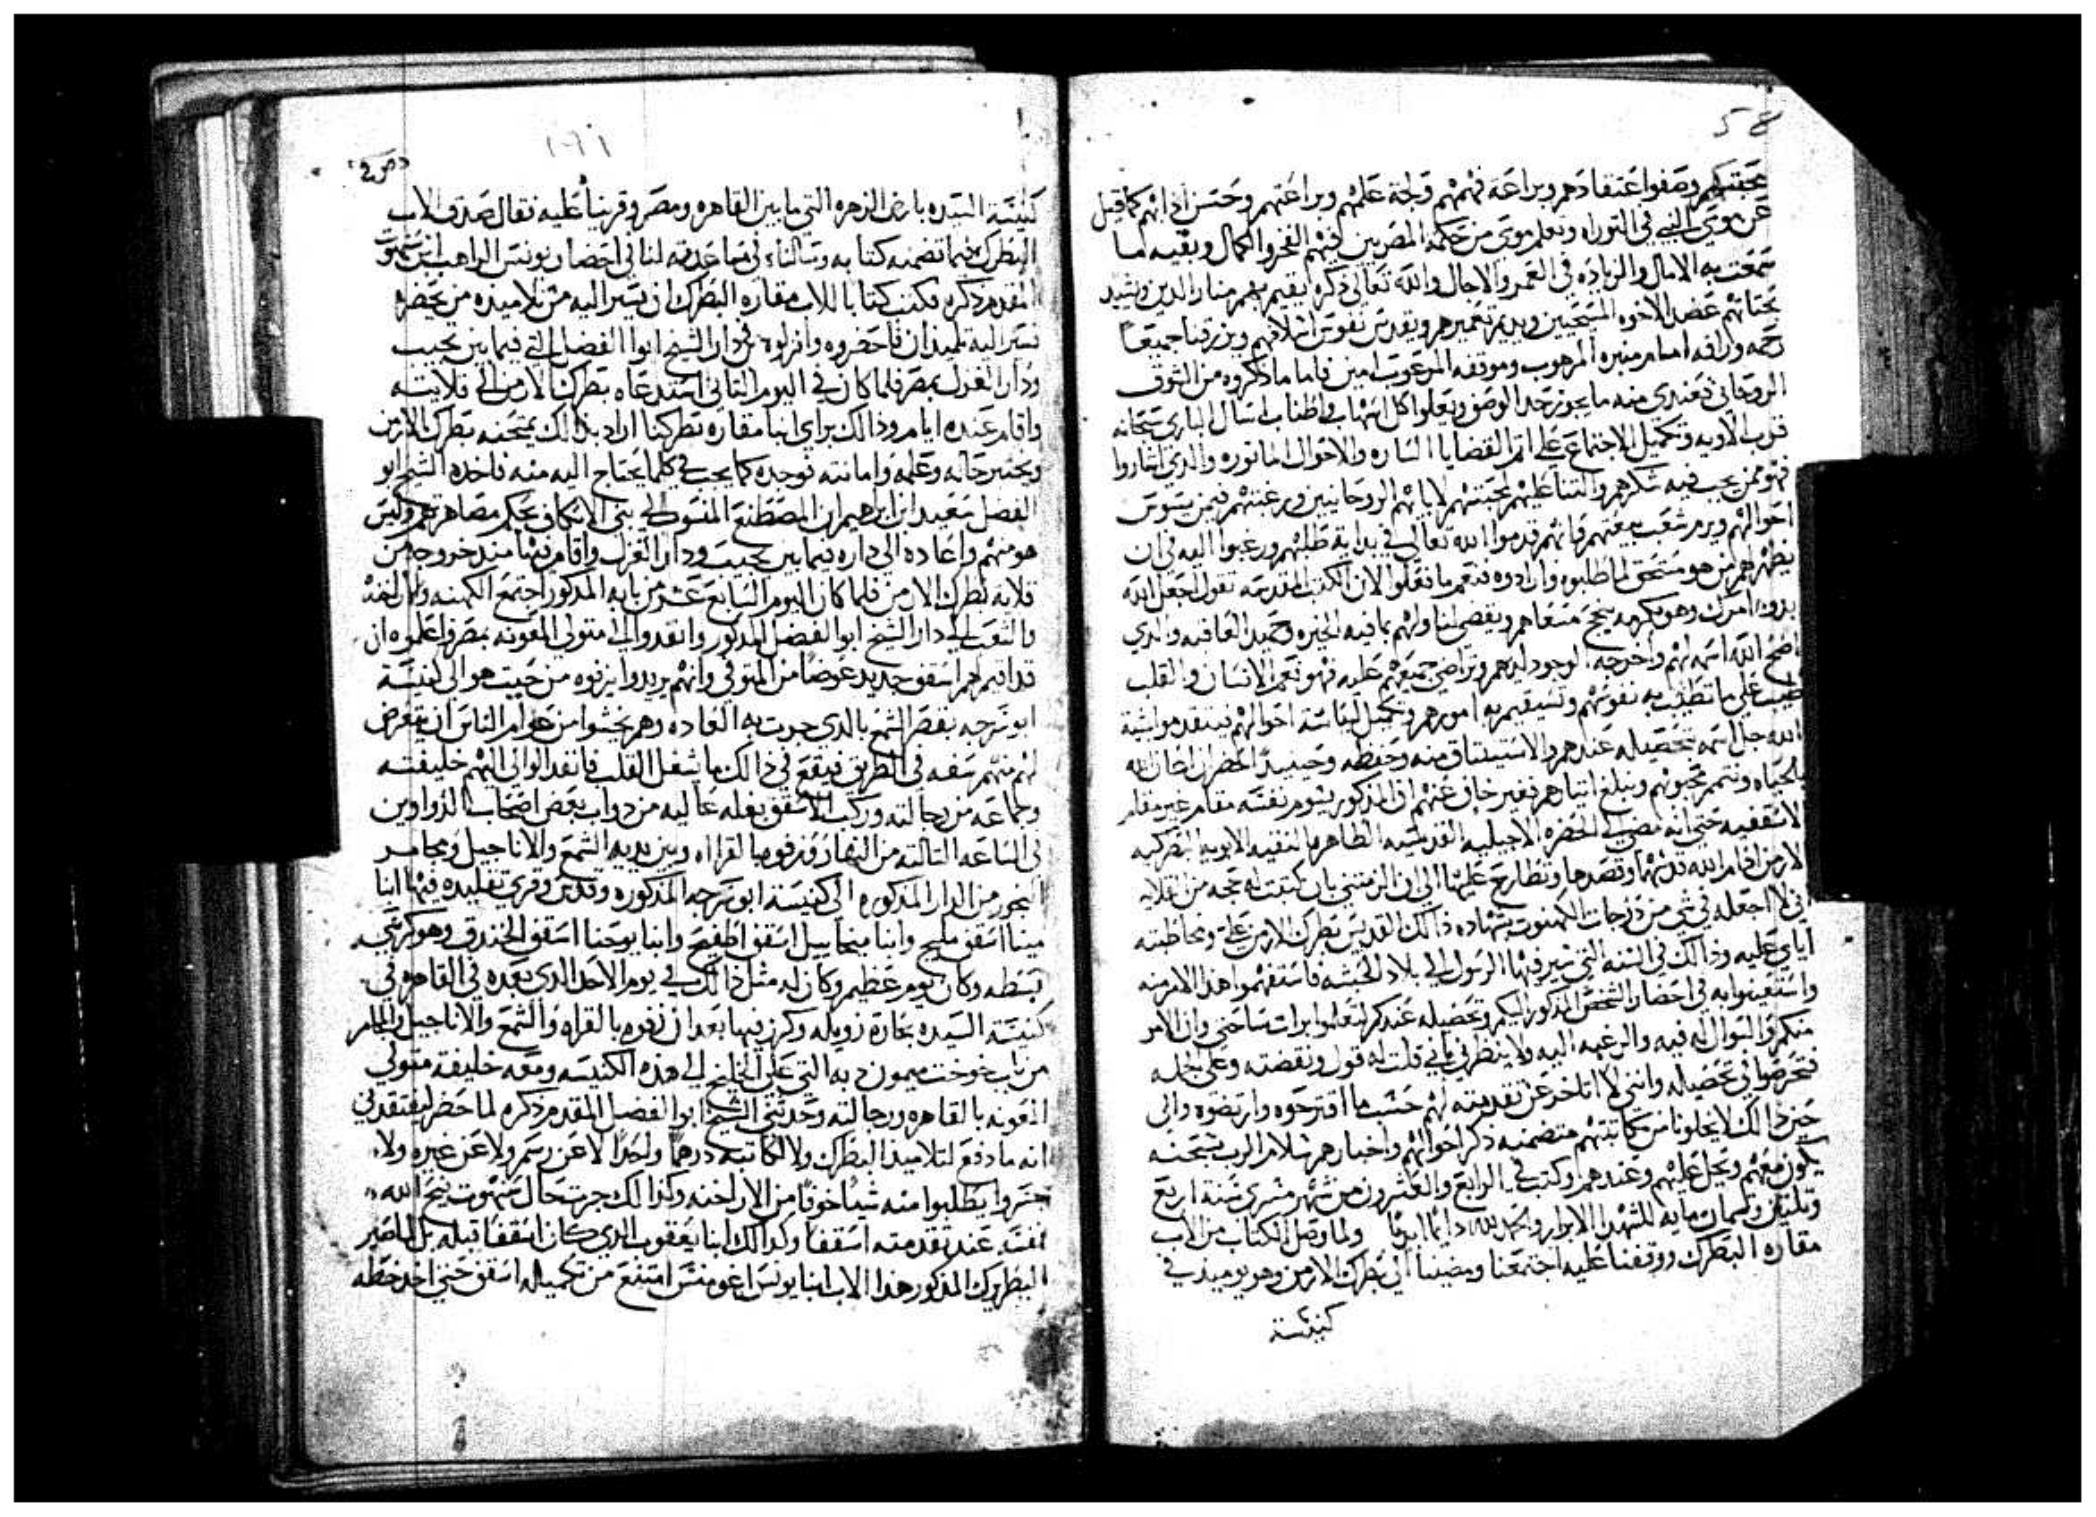 محبتكم وصفوا عتقادهم وبراعة فهمهم ولجة علمهم وبراعتهم وحسن اراهم كما قيل
عن موسى النبي في التوراه وتعلم موسى من حكمة المصريين فيهم الفخر والكمال وبقيه اما
سمعت به الامال والزياده في العمر والاجال والله تعالى ذكره يقيم بهم منار الدين ويشيد
بحياتهم عضد الاخوه المسيحيين ويديم تعميرهم ويقدس نفوس اسلافهم ويرزقنا جميعا
رحمه ورافه امام منبره المرهوب وموقفه المرعوب امين فاما ما ذكروه من الشوق
الروحاني فعندي منه ما يجوز حد الوصف ويعلوا كل اسهاب واطناب اسال الباري سبحانه
قرب الاوبه وتكميل الاجتماع على اتم القضايا الساره والاحوال الماتوره والذي اشاروا
فهو ممن يجب فيه شكرهم والثنا عليهم لمحبتهم لابايهم الروحانيين ورغبتهم فيمن يسوس
احوالهم ويرم شعب بيعتهم فانهم قدموا الله تعالى في بداية طلبهم ورغبوا اليه في ان
يظهر لهم من هو مستحق لما طلبوه وارادوه فنعم ما فعلوا لان الكتب المقدسه تقول اجعل الله
بدوا امرك وهو بكرمه ينجح مسعاهم ويقضي لنا ولهم بما فيه الخيره وحميد العاقبه والذي
اوضح الله اسمه لهم واخرجه لوجود لديهم وتراضي جميعهم عليه فهو نعم الانسان والقلب
طيب على ما تطيب به نفوسهم وتستقيم به امورهم وتكمل لسياسة احوالهم فيتقدموا بثقة
الله جل اسمه تحصيله عندهم والاستيتاق منه وحفظه وحينيد احضر ان اطال الله
الحياه ونتمم محبوبهم ونبلغ ايتارهم فغير خاف عنهم ان المذكور يسوم نفسه مقام غير مقام
الاسقفيه حتى انه مضى الى الحضره الانجيليه القديسيه الطاهره النقيه الابويه البطركيه
الارمن ادام الله قدسها وقصدها وتطارح عليها الى ان الزمتني بان كتبت له حجه من القلايه
اني لا اجعله في شي من درجات الكهنوت بشهاده ذالك القديس بطرك الارمن علي ومخاطبته
اياي عليه وذالك في السنه التي سير فيها الرسول الى بلاد الحبشه فاستفهموا هذا الامر منه
واستعينوا به في احضار الشخص المذكور اليكم وتحصيله عندكم لتعلموا براة ساحتي وان الامر
منكم والسوال له فيه والرغبه اليه ولا ينظر في باني قلت له قول ونقضته وعلى الجمله
فتحرصوا في تحصيله وانني لا اتاخر عن تقدمته لهم حسب ما اقترحوه وارتضوه والى
حين ذالك لا يخلونا من مكاتبتهم متضمنه ذكر احوالهم واخبارهم سلام الرب بسبحته
يكون معهم ويحل عليهم وعندهم وكتب في الرابع والعشرون من شهر مسري سنة اربع
وتلتين وتمان مايه للشهدا الابرار والحمد لله دايما ابديا ولما وصل الكتاب من الاب
مقاره البطرك ووقفنا عليه اجتمعنا ومضينا الى بطرك الارمن وهو يوميد في
كنيسة
كنيسة السيده بارض الزهره التي ما بين القاهره ومصر وقرينا عليه فقال صدق الاب
البطرك فيما تضمنه كتابه وسالناه في مساعدته لنا في احضار يونس الراهب ابن سنهوت
المقدم ذكره فكتب كتابا للاب مقاره البطرك ان يسير اليه من تلاميذه من يحضره
فسير اليه تلميذان فاحضروه وانزلوه في دار الشيخ ابوا الفضل التي فيما بين بحبيب
ودار الغزل بمصر فلما كان في اليوم التاني استدعاه بطرك الارمن الى قلايته
واقام عنده ايام وذالك براي انبا مقاره بطركنا اراد بذالك يمتحنه بطرك الارمن
ويختبر حاله وعلمه وامانته فوجده كما يجب في كلما يحتاج اليه منه فاخده الشيخ ابو
الفضل سعيد ابن ابرهيم ابن المصطنع المنسوب الى بني الاسكاف بحكم مصاهرتهم وليس
هو منهم واعاده الى داره فيما بين بحبيب ودار الغزل واقام فيها منذ خروجه من
قلاية بطرك الارمن فلما كان اليوم السابع عشر من بابه المذكور اجتمع الكهنه والاراخنه
والشعب الى دار الشيخ ابو الفضل المذكور وانفدوا الى متولي المعونه بمصر واعلموه ان
قد اقيم لهم اسقف جديد عوضا من المتوفي وانهم يريدوا يزفوه من حيت هو الى كنيسة
ابو سرجه بقصر الشمع بالذي جرت به العاده وهم يخشوا من عوام الناس ان يتعرض
لهم منهم سفه في الطريق فيقع في ذالك ما يشغل القلب فانفد الوالي اليهم خليفته
وجماعه من رجالته وركب الاسقف بغله عاليه من دواب بعض اصحاب الدواوين
في الساعه التالته من النهار وزفوه بالقراه وبين يديه الشمع والاناجيل ومجامر
البخور من الدار المذكوره الى كنيسة ابو سرجه المذكوره وقدس وقري تقليده فيها انبا
مينا اسقف مليج وانبا ميخاييل اسقف اطفيح وانبا يوحنا اسقف الخندق وهو كرسي
بسطه وكان يوم عظيم وكان له مثل ذالك في يوم الاحد الذي بعده في القاهره في
كنيسة السيده بحارة زويله وكرز فيها بعد ان زفوه بالقراه والشمع والاناجيل والمجامر
من باب خوخت ميمون دبه التي على الخليج الى هذه الكنيسه ومعه خليفة متولي
المعونه بالقاهره ورجالته وحدتني الشيخ ابوا الفضل المقدم ذكره لما حضر ليفتقدني
انه ما دفع لتلاميذ البطرك ولا لكاتبه درهما واحدا لا عن رسم ولا عن غيره ولا
جسروا يطلبوا منه شيا خوفا من الاراخنه وكذالك جرت حال سنهوت نيح الله
نفسه عند تقدمته اسقفا وكذالك انبا يعقوب الذي كان اسقفا قبله بل لما صير
البطريرك المذكور هذا الاب انبا يونس اغومنس امتنع من تكميله اسقف حتى اخد خطه